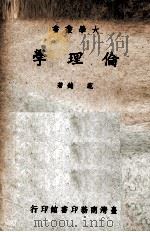 大學叢書
倫理學
范錡著
臺灣商務印書館印行